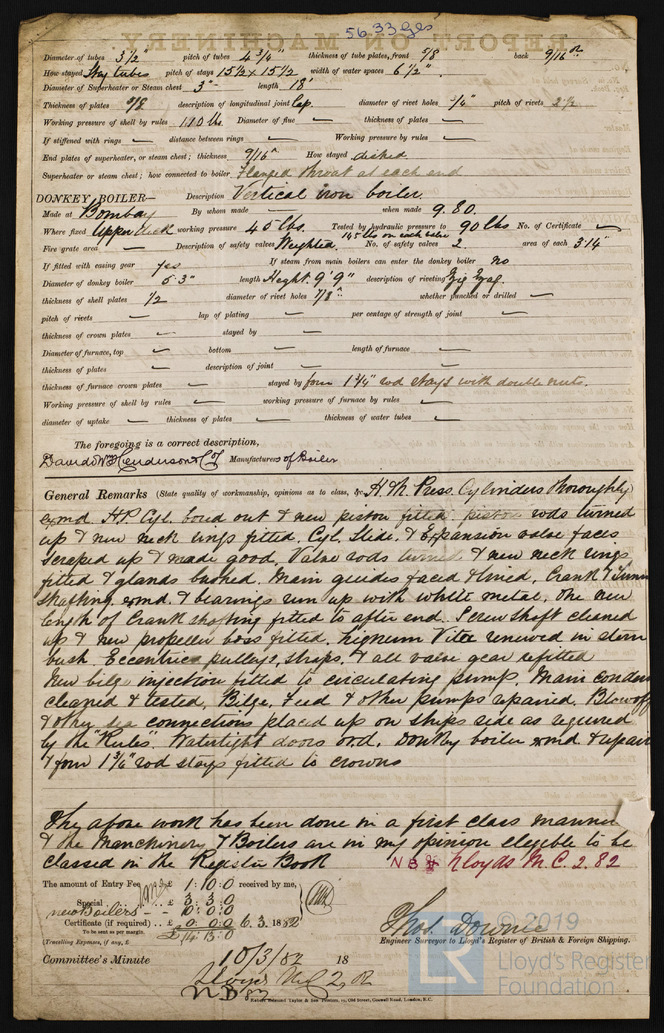 56.33 Gls
Diameter of tubes 3 1/2" pitch of tubes 4 3/4" thickness of tube plates, front 5/8 back 9/16"
How stayed Stay tubes pitch of stays 15 1/2 x 15 1/2 width of water spaces 6 1/2"
Diameter of Superheater or Steam chest 3"– length 18'
Thickness of plates 9/8 description of longitudinal joint Lap. diameter of rivet holes 3/4" pitch of rivets 2 1/2
Working pressure of shell by rules 110 lbs Diameter of flue — thickness of plates —
If stiffened with rings — distance between rings — Working pressure by rules —
End plates of superheater, or steam chest; thickness 9/16" How stayed dished.
Superheater or steam chest; how connected to boiler Flanged throat at each end
DONKEY BOILER— Description Vertical iron boiler.
Made at Bombay By whom made — when made 9.80.
Where fixed Upper deck working pressure 45 lbs. Tested by hydraulic pressure to 90 lbs No. of Certificate —
Fire grate area — Description of safety valves Weighted 145 lbs on each valve No. of safety valves 2. area of each 3.14"
If fitted with easing gear yes If steam from main boilers can enter the donkey boiler no
Diameter of donkey boiler 5.3" length Height. 9'9" description of riveting Zig Zag.
thickness of shell plates 1/2 diameter of rivet holes 7/8" whether punched or drilled —
pitch of rivets — lap of plating — per centage of strength of joint —
thickness of crown plates — stayed by —
Diameter of furnace, top — bottom — length of furnace —
thickness of plates — description of joint —
thickness of furnace crown plates — stayed by four 1 3/4" rod stays with double nuts.
Working pressure of shell by rules — working pressure of furnace by rules —
diameter of uptake — thickness of plates — thickness of water tubes —
The foregoing is a correct description,
David & Wm Henderson & Co Manufacturers of Boiler
General Remarks (State quality of workmanship, opinions as to class, &c. H & Press. Cylinders thoroughly
exmd. H.P. Cyl. bored out & new piston fitted piston rods turned
up & new neck rings fitted. Cyl. Slide. & Expansion valve faces
scraped up & made good. Valve rods turned & new neck rings
fitted & glands bushed. Main guides faced & lined. Crank & Tunnel
shafting exmd. & bearings run up with white metal. One new
length of Crank shafting fitted to after end. Screw shaft cleaned
up & new propeller boss fitted. Lignum Vitæ renewed in stern
bush. Eccentric pulleys, straps, & all valve gear refitted
New bilge injection fitted to circulating pump. Main conden
cleaned & tested, Bilge, Feed & other pumps repaired. Blow off
& other sea connections placed up on ships side as required
by the "Rules". Watertight doors ord. Donkey boiler exmd. & repair
& four 1 3/4" rod stays fitted to crowns
The above work has been done in a first class manner
& the Manchinery & Boilers are in my opinion elegible to be
classed in the Register Book N B & Lloyds M.C. 2.82
The amount of Entry Fee £ 1:10:0 received by me,
Special .. £ 3:3:0
new Boilers – 10:0:0
Certificate (if required) .. £ 0:0:0 6.3.1882
To be sent as per margin. £14:13:0
(Travelling Expenses, if any, £
Thos. Downie
Engineer Surveyor to Lloyd's Register of British & Foreign Shipping.
Committee's Minute 10/3/82 18
Lloyds MC 2,82
N B 82
© 2019
LR Lloyd's Register
Foundation